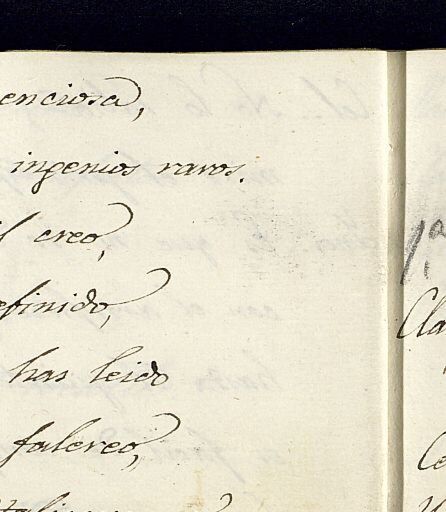 enciosa,
ingenios raros.
creo,
efinido,
has leido
falereo,
1ª
Cla